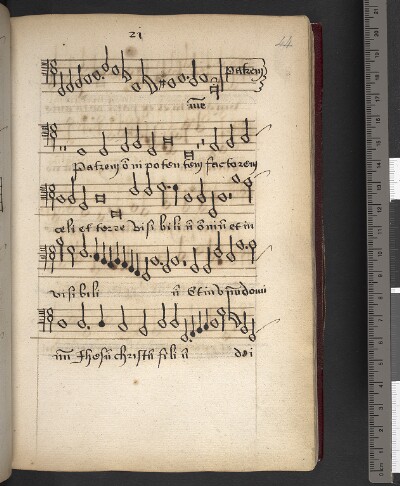 21
44
patrem
me
Patrem õ ni poten tem factorem
celi et terre visi bili ũ õniũ et in
visi bili ũ Et in v domi
nũ Jhesũ christũ fili ũ dei